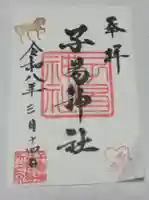 奉拝
子易神社
令和八年三月十四日